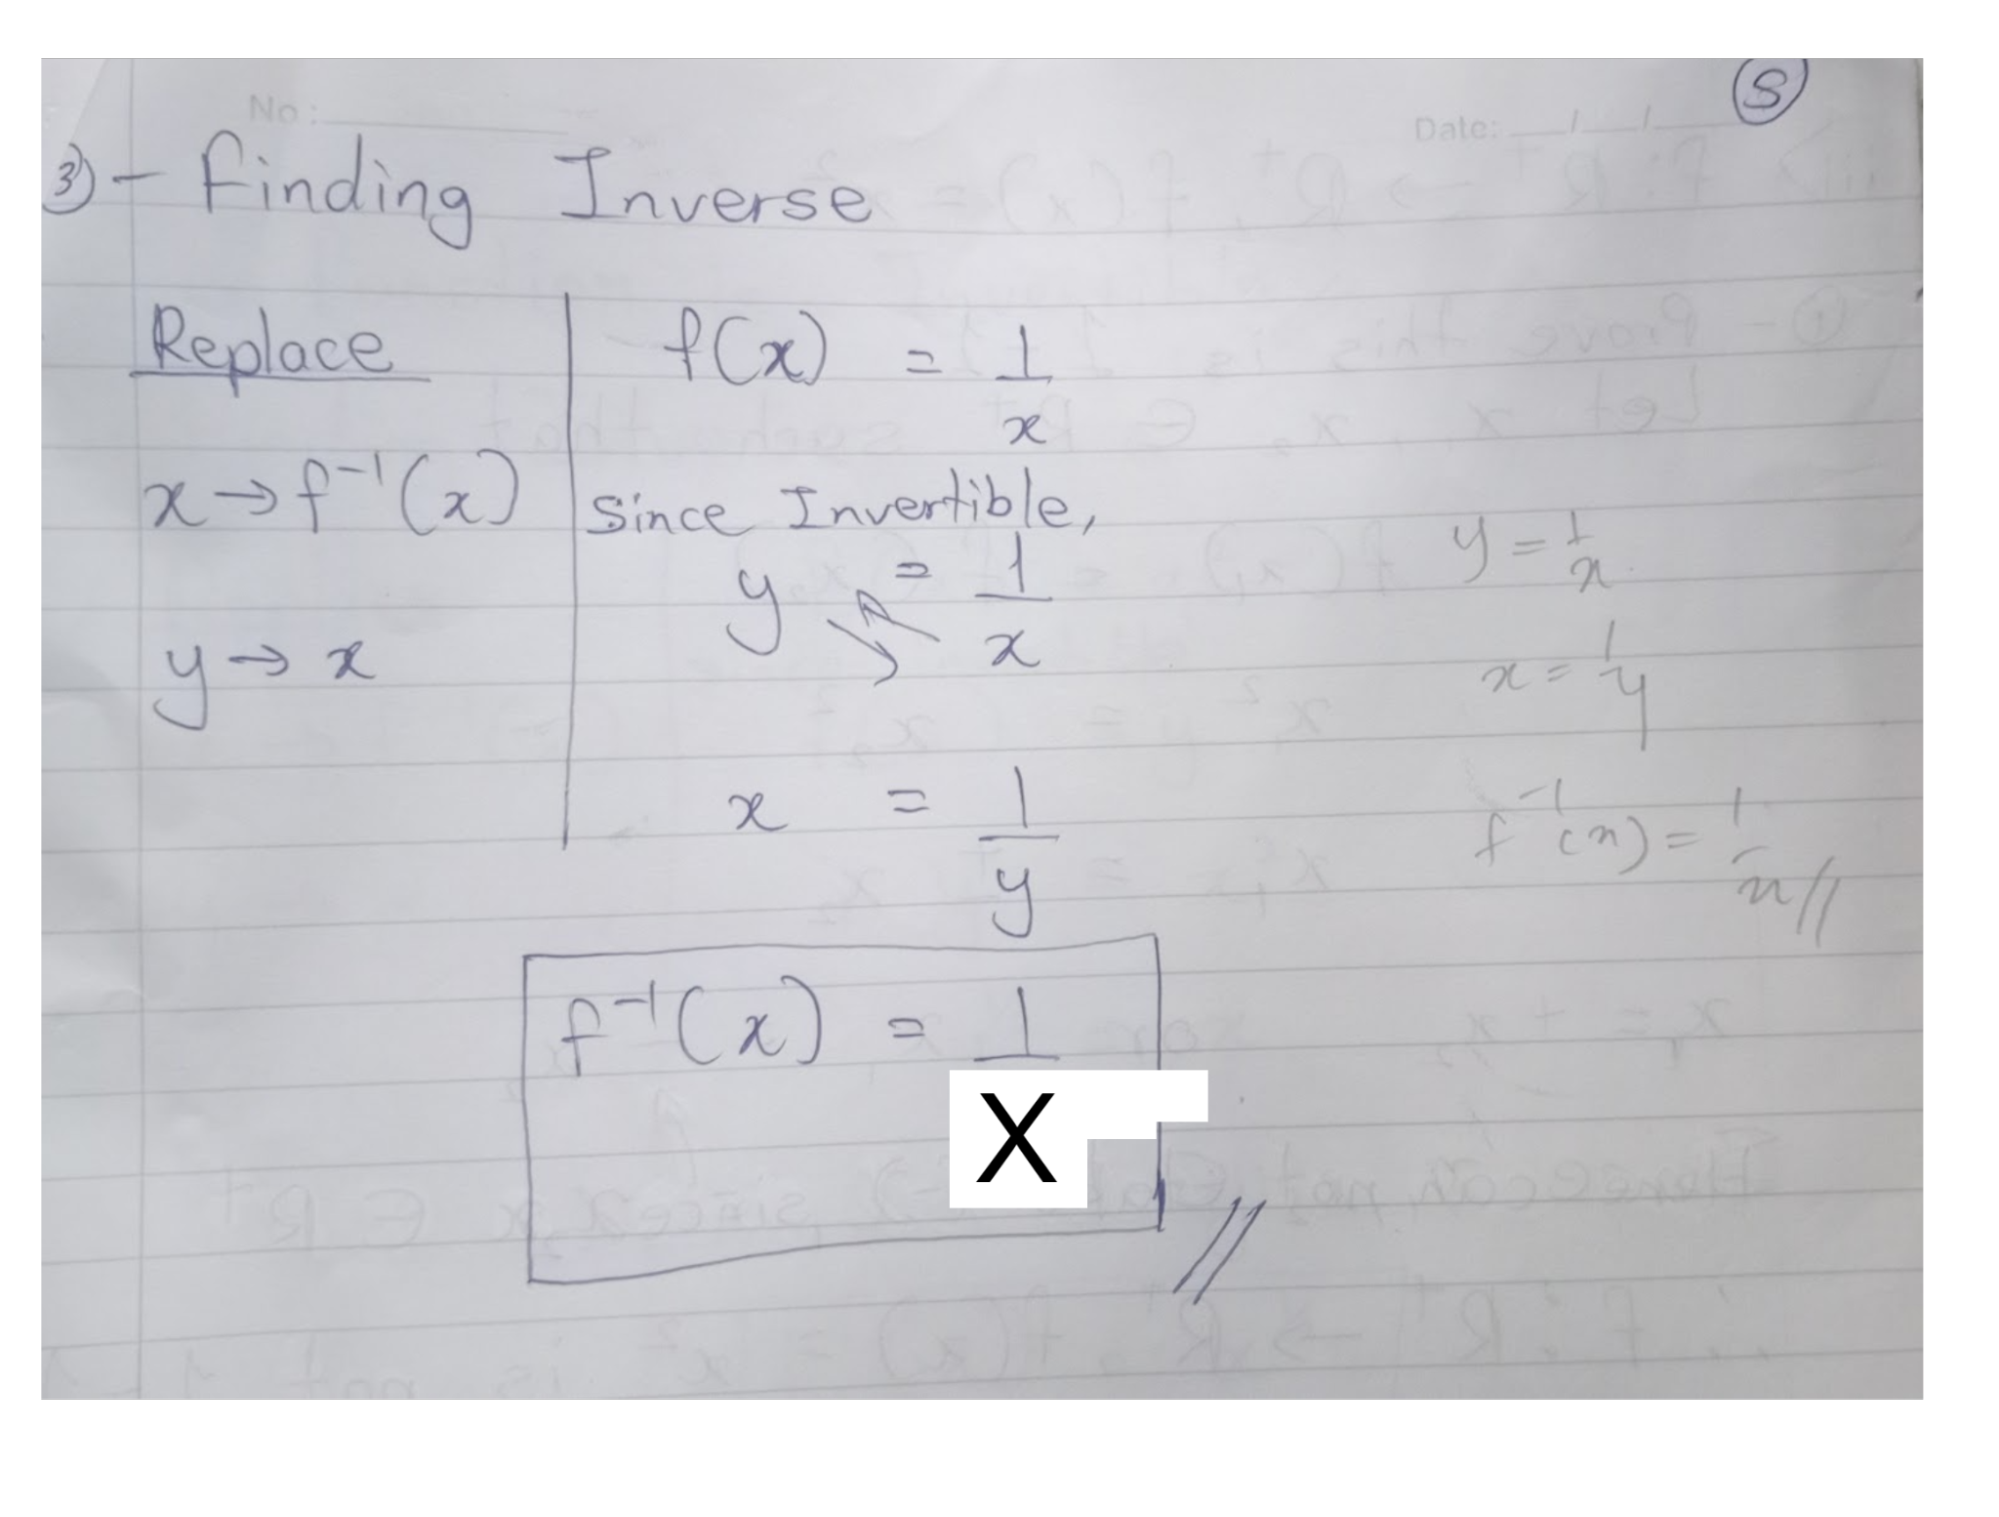 S
No:
Date: / /
3) - Finding Inverse
Replace
f(x) = 1/x
x → f⁻¹(x)
since Invertible,
y = 1/x
y = 1/x
y → x
x = 1/y
x = 1/y
f⁻¹(x) = 1/x //
f⁻¹(x) = 1/X //